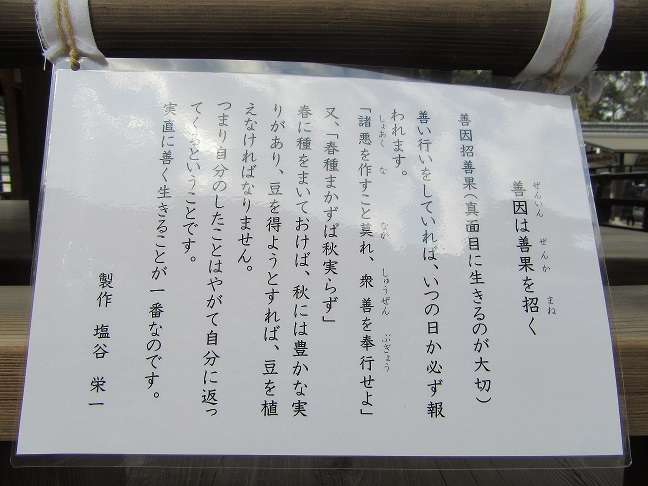 善因は善果を招く
善因招善果（真面目に生きるのが大切）
善い行いをしていれば、いつの日か必ず報
われます。
「諸悪を作すこと莫れ、衆善を奉行せよ」
又、「春種まかずば秋実らず」
春に種をまいておけば、秋には豊かな実
りがあり、豆を得ようとすれば、豆を植
えなければなりません。
つまり自分のしたことはやがて自分に返っ
てくるということです。
実直に善く生きることが一番なのです。
製作 塩谷 栄一